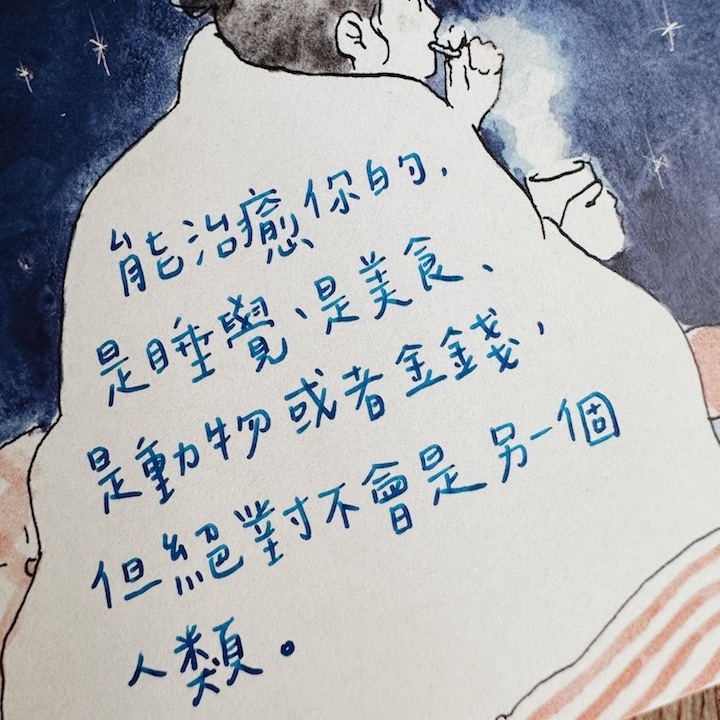 能治癒你的，
是睡覺、是美食、
是動物或者金錢，
但絕對不會是另一個
人類。